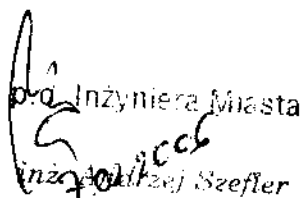 p.o. Inżyniera Miasta
inż. Andrzej Szefler